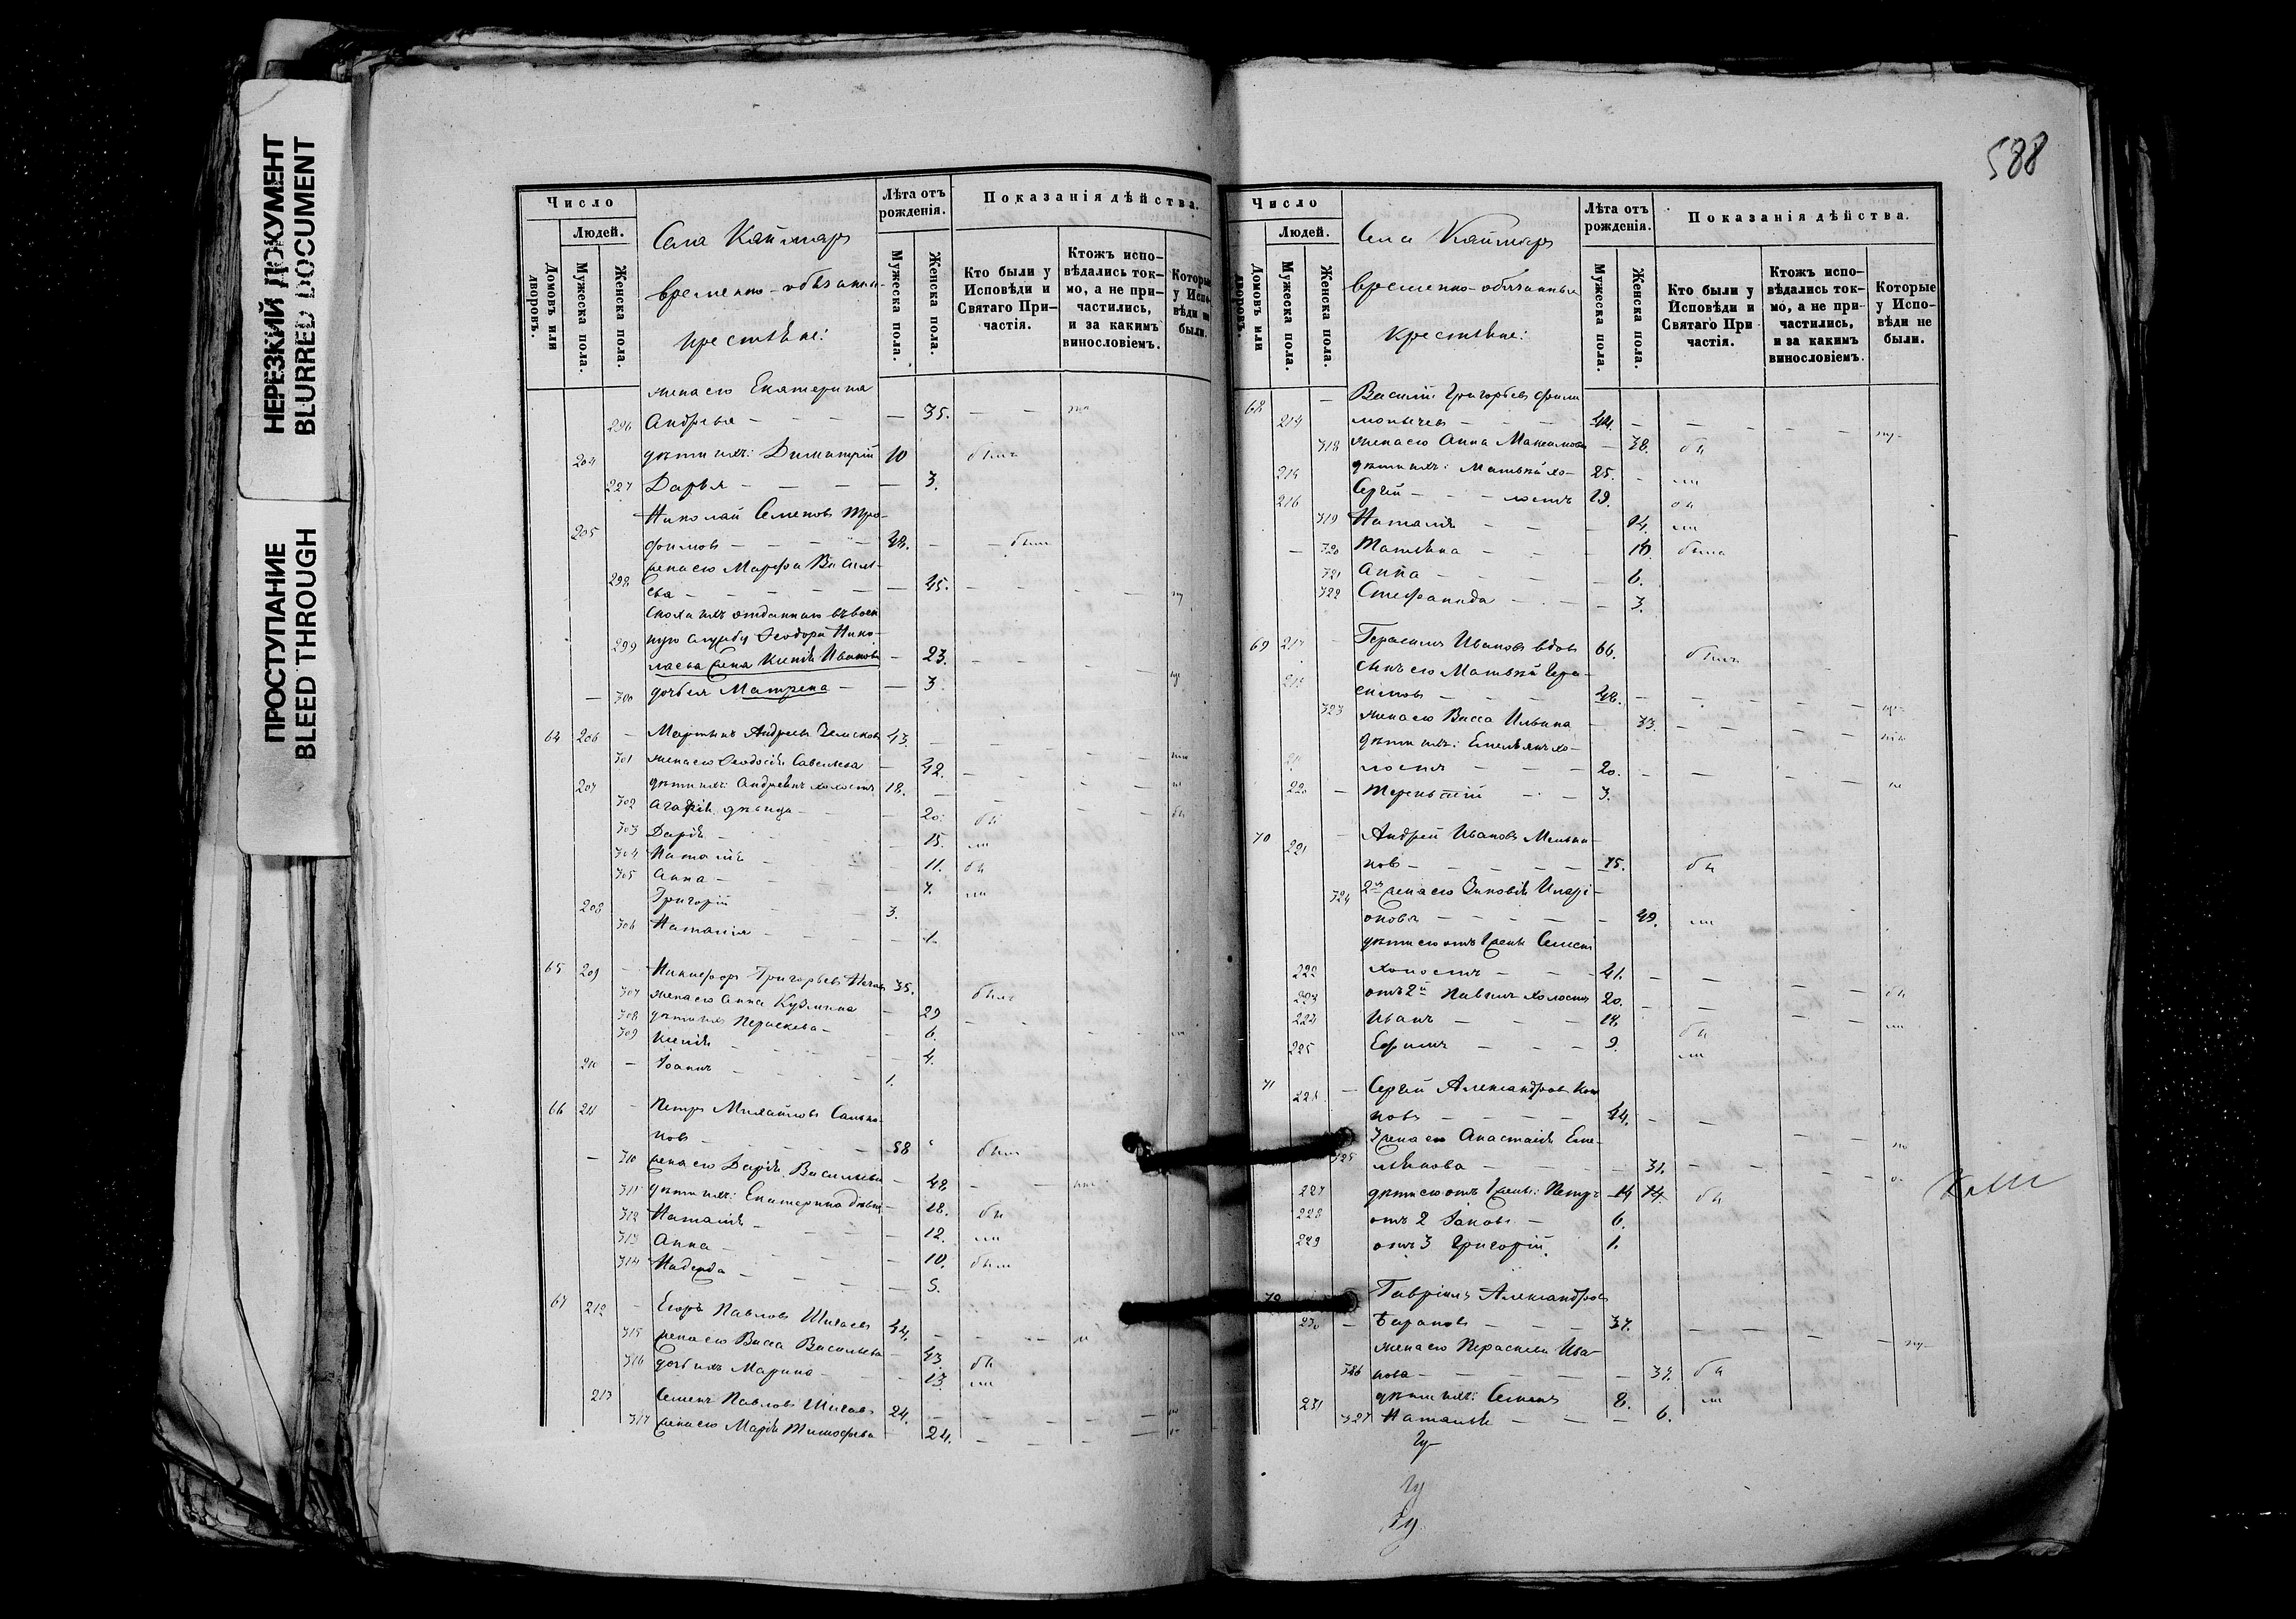 НЕРЕЗКИЙ ДОКУМЕНТ
BLURRED DOCUMENT
ПРОСТУПАНИЕ
BLEED THROUGH
Число
Людей.
Домовъ или дворовъ.
Мужеска пола.
Женска пола.
Села Каймаръ
временно-обязанные
крестьяне:
Лѣта отъ рожденія.
Мужеска пола.
Женска пола.
Показанія дѣйства.
Кто были у Исповѣди и Святаго Причастія.
Ктожъ исповѣдались токмо, а не причастились, и за какимъ винословіемъ.
Которые у Исповѣди не были.
жена его Екатерина
296 Андреева — 35.
204 дѣти ихъ: Димитрій 10
297 Дарья — 3.
Николай Семеновъ Тро-
205 фимовъ — 48.
жена его Марфа Василь-
298 ева — 45.
Сноха ихъ отданнаго въ воен
299 ную службу Ѳеодора Нико-
лаева жена Ксенія Иванова — 23.
300 дочь ея Матрена — 3.
64 206 Мартинъ Андреевъ 43.
301 жена его Ѳеодосія Савельева 42.
207 дѣти ихъ: холостъ 18.
302 Агафія дѣвица 20.
303 Дарія 15.
304 Наталія 11.
305 Анна 7.
208 Григорій 3.
306 Наталія 1.
65 209 Никифоръ Григорьевъ 35.
307 жена его Анна Кузмина 29
308 дѣти ихъ Параскева 6.
309 Ксенія 4.
210 Іоаннъ 1.
66 211 Петръ Михайловъ
новъ 58
310 жена его Дарія Васильева 48.
311 дѣти ихъ: Екатерина дѣвиц 18.
312 Наталія 12.
313 Анна 10.
314 Надежда 5.
67 212 Егоръ Павловъ Шигаевъ 44.
315 жена его Васса Васильева 43.
316 дочь ихъ Марина 13.
213 Семенъ Павловъ Шигаевъ 24.
317 жена его Марія Тимофеева 24.
588
Число
Людей.
Домовъ или дворовъ.
Мужеска пола.
Женска пола.
Села Каймаръ
временно-обязанные
крестьяне:
Лѣта отъ рожденія.
Мужеска пола.
Женска пола.
Показанія дѣйства.
Кто были у Исповѣди и Святаго Причастія.
Ктожъ исповѣдались токмо, а не причастились, и за какимъ винословіемъ.
Которые у Исповѣди не были.
68 Василій Григорьевъ Фили
214 монычевъ 44.
318 жена его Анна Максимова 38.
дѣти ихъ: Матвѣй хо- 25.
216 Сергѣй — лостъ 19.
319 Наталія 14.
320 Татьяна
321 Анна 6.
322 Стефанида 3.
69 217 Герасимъ Ивановъ вдовъ 66.
былъ
сынъ его Матвѣй Гера-
симовъ 48.
323 жена его Васса Ильина 33.
дѣти ихъ: Емельянъ хо-
лостъ 20.
220 Терентій 3.
70 221 Андрей Ивановъ Мельни-
ковъ 75.
324 2я жена его Зиновія Иларі-
онова 49.
дѣти его отъ 1 жены Семенъ
222 холостъ 41.
223 отъ 2й Павелъ холостъ 20.
224 Иванъ
225 Ефимъ 9.
71 226 Сергѣй Александровъ
новъ 44.
3 жена его Анастасія Еме-
325 льянова 31.
227 дѣти его отъ 1 жены: Петръ 14
228 отъ 2 Іаковъ 6.
229 отъ 3 Григорій 1.
72 Гавріилъ Александровъ
230 Барановъ 37.
жена его Параскева Ива-
326 нова 37.
231 дѣти ихъ: Семенъ 8.
327 Наталія 6.